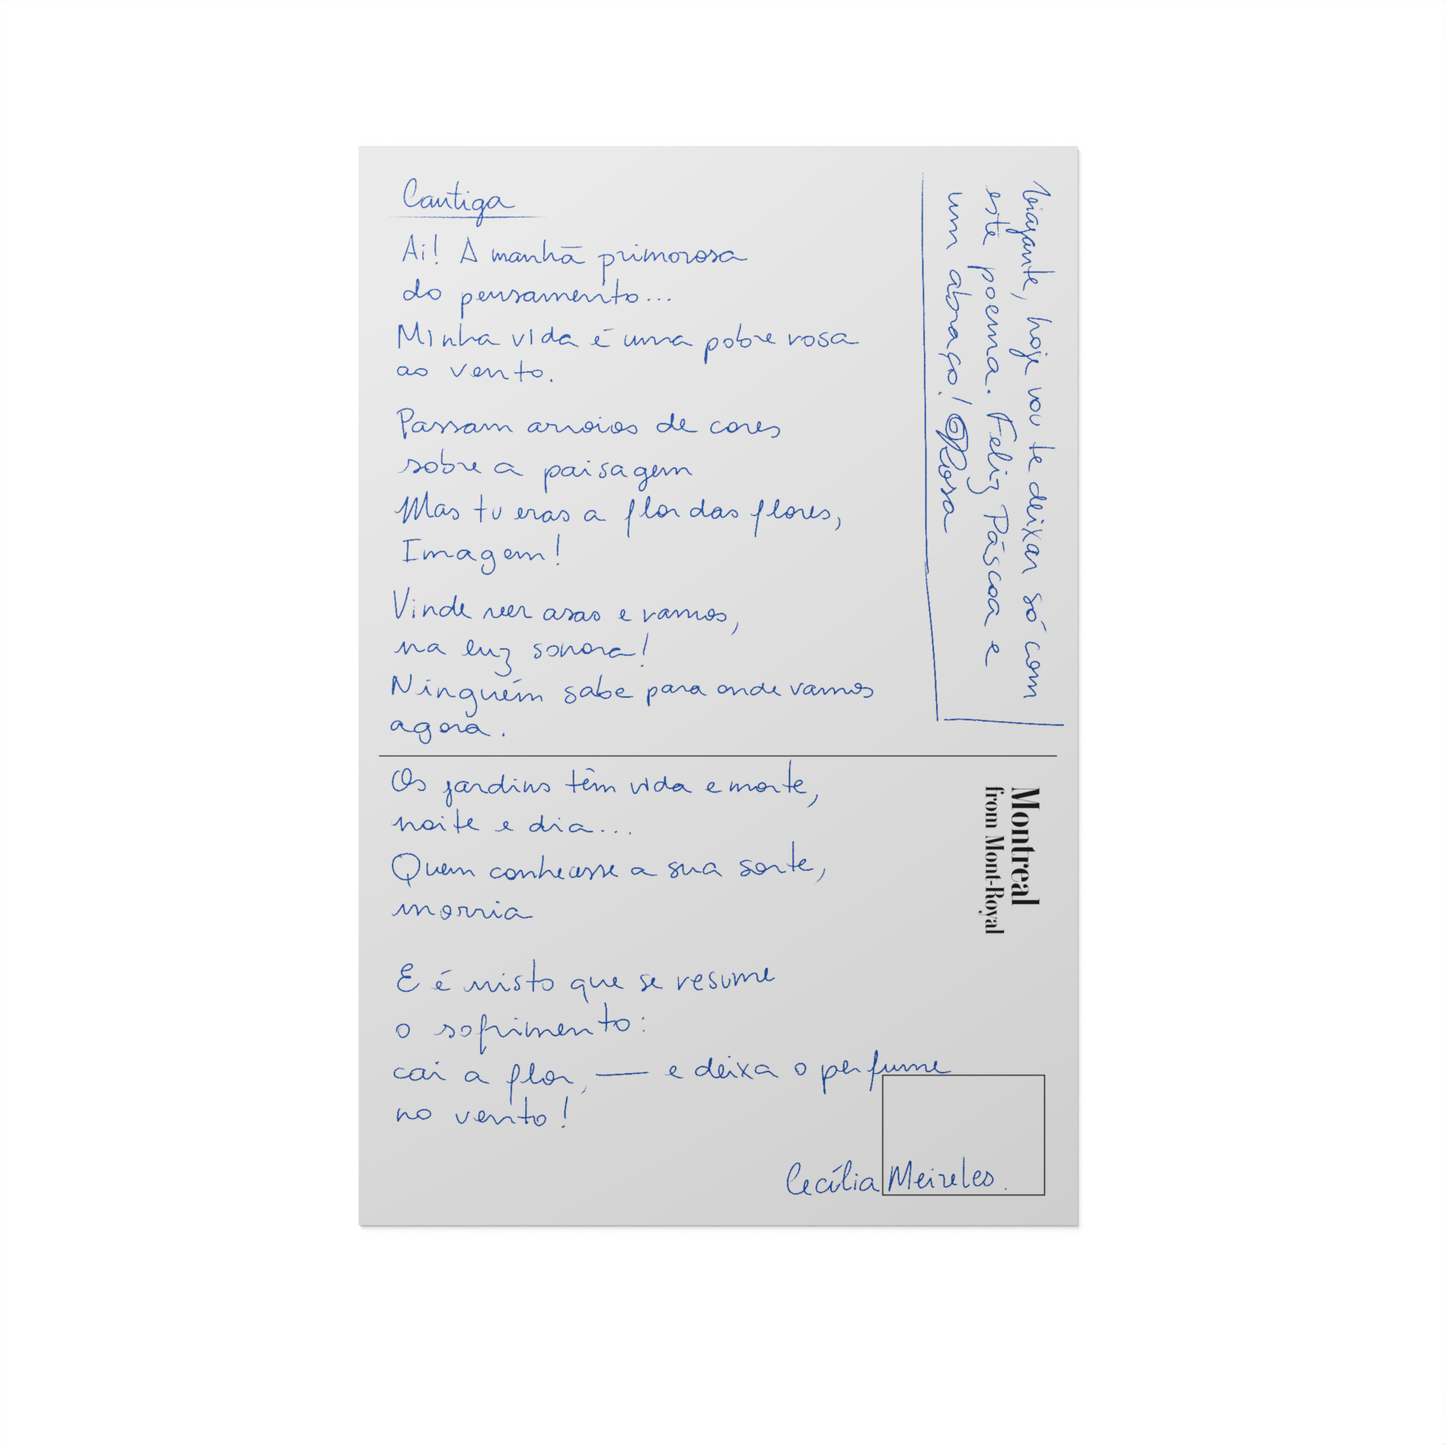 Cantiga
Ai! A manhã primorosa
do pensamento...
Minha vida é uma pobre rosa
ao vento.
Passam arroios de cores
sobre a paisagem
Mas tu eras a flor das flores,
Imagem!
Vinde ver asas e ramos,
na luz sonora!
Ninguém sabe para onde vamos
agora.
Os jardins têm vida e morte,
noite e dia...
Quem conhecesse a sua sorte,
morria
E é nisto que se resume
o sofrimento:
cai a flor, — e deixa o perfume
no vento!
Cecília Meireles.
Viajante, hoje vou te deixar só com
este poema. Feliz Páscoa e
um abraço! Rosa
Montreal
from Mont-Royal